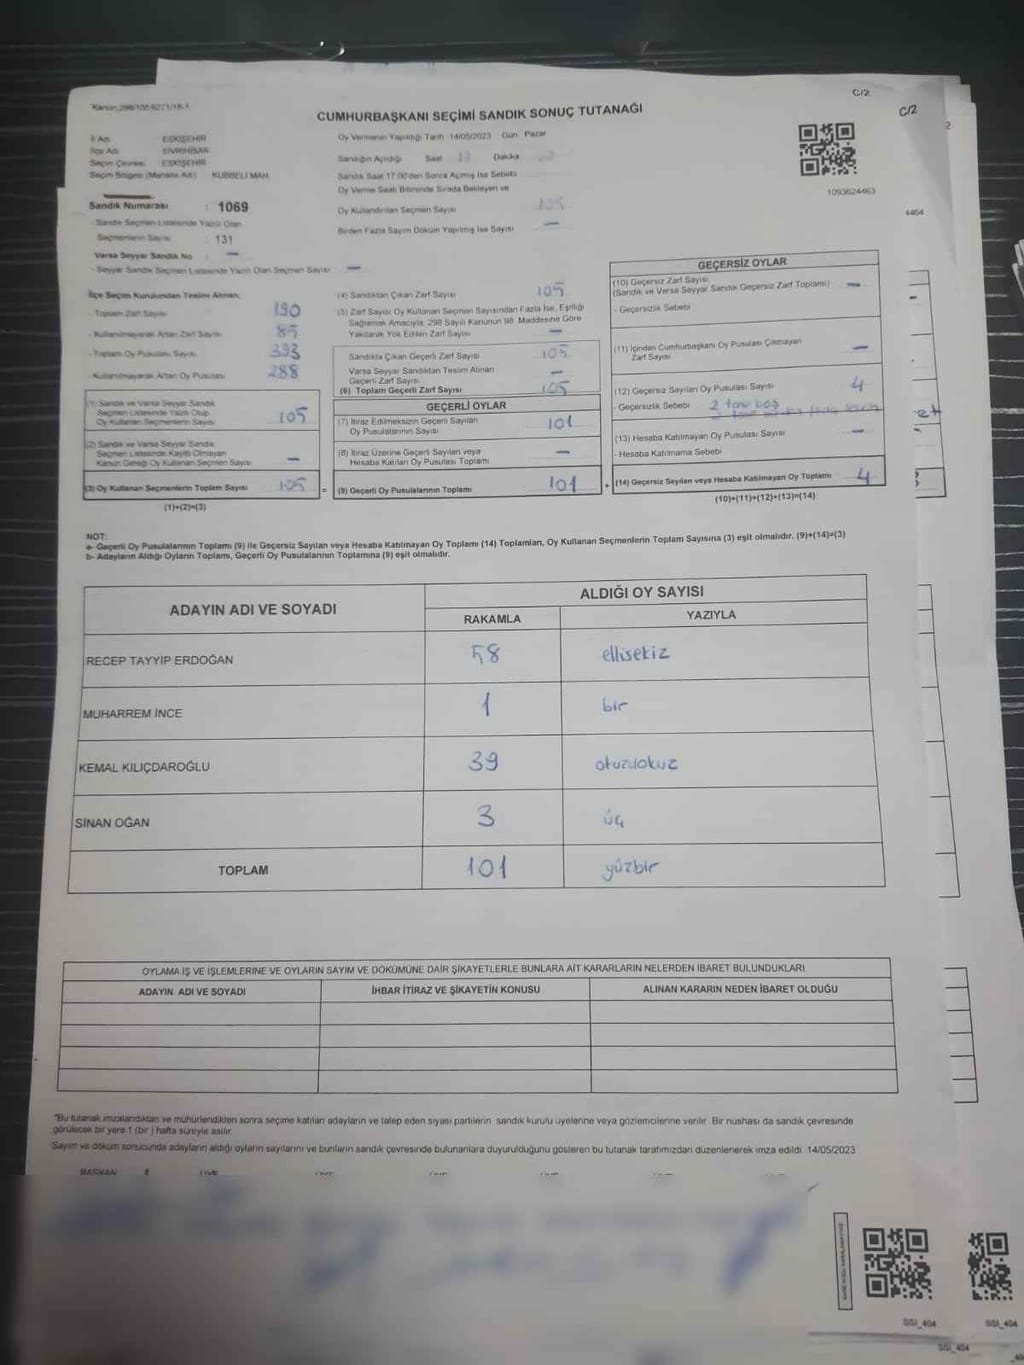 Kanun: 298/105 6271/18-1
C/2
C/2
2
CUMHURBAŞKANI SEÇİMİ SANDIK SONUÇ TUTANAĞI
İl Adı : ESKİŞEHİR
İlçe Adı : SİVRİHİSAR
Seçim Çevresi : ESKİŞEHİR
Seçim Bölgesi (Mahalle Adı) : KUBBELİ MAH.
Oy Vermenin Yapıldığı Tarih 14/05/2023 Gün: Pazar
Sandığın Açıldığı Saat Dakika
Sandık Saat 17.00'den Sonra Açılmış İse Sebebi
Oy Verme Saati Bitiminde Sırada Bekleyen ve
Oy Kullandırılan Seçmen Sayısı 105
Birden Fazla Sayım Döküm Yapılmış İse Sayısı —
1093624463
4464
Sandık Numarası : 1069
- Sandık Seçmen Listesinde Yazılı Olan
Seçmenlerin Sayısı : 131
Varsa Seyyar Sandık No : —
- Seyyar Sandık Seçmen Listesinde Yazılı Olan Seçmen Sayısı —
İlçe Seçim Kurulundan Teslim Alınan;
- Toplam Zarf Sayısı 190
- Kullanılmayarak Artan Zarf Sayısı 85
- Toplam Oy Pusulası Sayısı 393
- Kullanılmayarak Artan Oy Pusulası 288
(1) Sandık ve Varsa Seyyar Sandık
Seçmen Listesinde Yazılı Olup
Oy Kullanan Seçmenlerin Sayısı 105
(2) Sandık ve Varsa Seyyar Sandık
Seçmen Listesinde Kayıtlı Olmayan
Kanun Gereği Oy Kullanan Seçmen Sayısı —
(3) Oy Kullanan Seçmenlerin Toplam Sayısı 105 =
(1)+(2)=(3)
(4) Sandıktan Çıkan Zarf Sayısı 105
(5) Zarf Sayısı Oy Kullanan Seçmen Sayısından Fazla İse, Eşitliği
Sağlamak Amacıyla, 298 Sayılı Kanunun 98. Maddesine Göre
Yakılarak Yok Edilen Zarf Sayısı —
Sandıkta Çıkan Geçerli Zarf Sayısı 105
Varsa Seyyar Sandıktan Teslim Alınan
Geçerli Zarf Sayısı —
(6) Toplam Geçerli Zarf Sayısı 105
GEÇERLİ OYLAR
(7) İtiraz Edilmeksizin Geçerli Sayılan
Oy Pusulalarının Sayısı 101
(8) İtiraz Üzerine Geçerli Sayılan veya
Hesaba Katılan Oy Pusulası Toplamı —
(9) Geçerli Oy Pusulalarının Toplamı 101 +
GEÇERSİZ OYLAR
(10) Geçersiz Zarf Sayısı
(Sandık ve Varsa Seyyar Sandık Geçersiz Zarf Toplamı) —
- Geçersizlik Sebebi
(11) İçinden Cumhurbaşkanı Oy Pusulası Çıkmayan
Zarf Sayısı —
(12) Geçersiz Sayılan Oy Pusulası Sayısı 4
- Geçersizlik Sebebi 2 tane boş
(13) Hesaba Katılmayan Oy Pusulası Sayısı —
- Hesaba Katılmama Sebebi
(14) Geçersiz Sayılan veya Hesaba Katılmayan Oy Toplamı 4
(10)+(11)+(12)+(13)=(14)
NOT:
a- Geçerli Oy Pusulalarının Toplamı (9) ile Geçersiz Sayılan veya Hesaba Katılmayan Oy Toplamı (14) Toplamları, Oy Kullanan Seçmenlerin Toplam Sayısına (3) eşit olmalıdır. (9)+(14)=(3)
b- Adayların Aldığı Oyların Toplamı, Geçerli Oy Pusulalarının Toplamına (9) eşit olmalıdır.
ADAYIN ADI VE SOYADI
ALDIĞI OY SAYISI
RAKAMLA YAZIYLA
RECEP TAYYİP ERDOĞAN 58 ellisekiz
MUHARREM İNCE 1 bir
KEMAL KILIÇDAROĞLU 39 otuzdokuz
SİNAN OĞAN 3 üç
TOPLAM 101 yüzbir
OYLAMA İŞ VE İŞLEMLERİNE VE OYLARIN SAYIM VE DÖKÜMÜNE DAİR ŞİKAYETLERLE BUNLARA AİT KARARLARIN NELERDEN İBARET BULUNDUKLARI
ADAYIN ADI VE SOYADI İHBAR İTİRAZ VE ŞİKAYETİN KONUSU ALINAN KARARIN NEDEN İBARET OLDUĞU
*Bu tutanak imzalandıktan ve mühürlendikten sonra seçime katılan adayların ve talep eden siyasi partilerin sandık kurulu üyelerine veya gözlemcilerine verilir. Bir nüshası da sandık çevresinde
görülecek bir yere 1 (bir) hafta süreyle asılır.
Sayım ve döküm sonucunda adayların aldığı oyların sayılarını ve bunların sandık çevresinde bulunanlara duyurulduğunu gösteren bu tutanak tarafımızdan düzenlenerek imza edildi. 14/05/2023
BAŞKAN
SSI_404
SSI_404
SSI_404